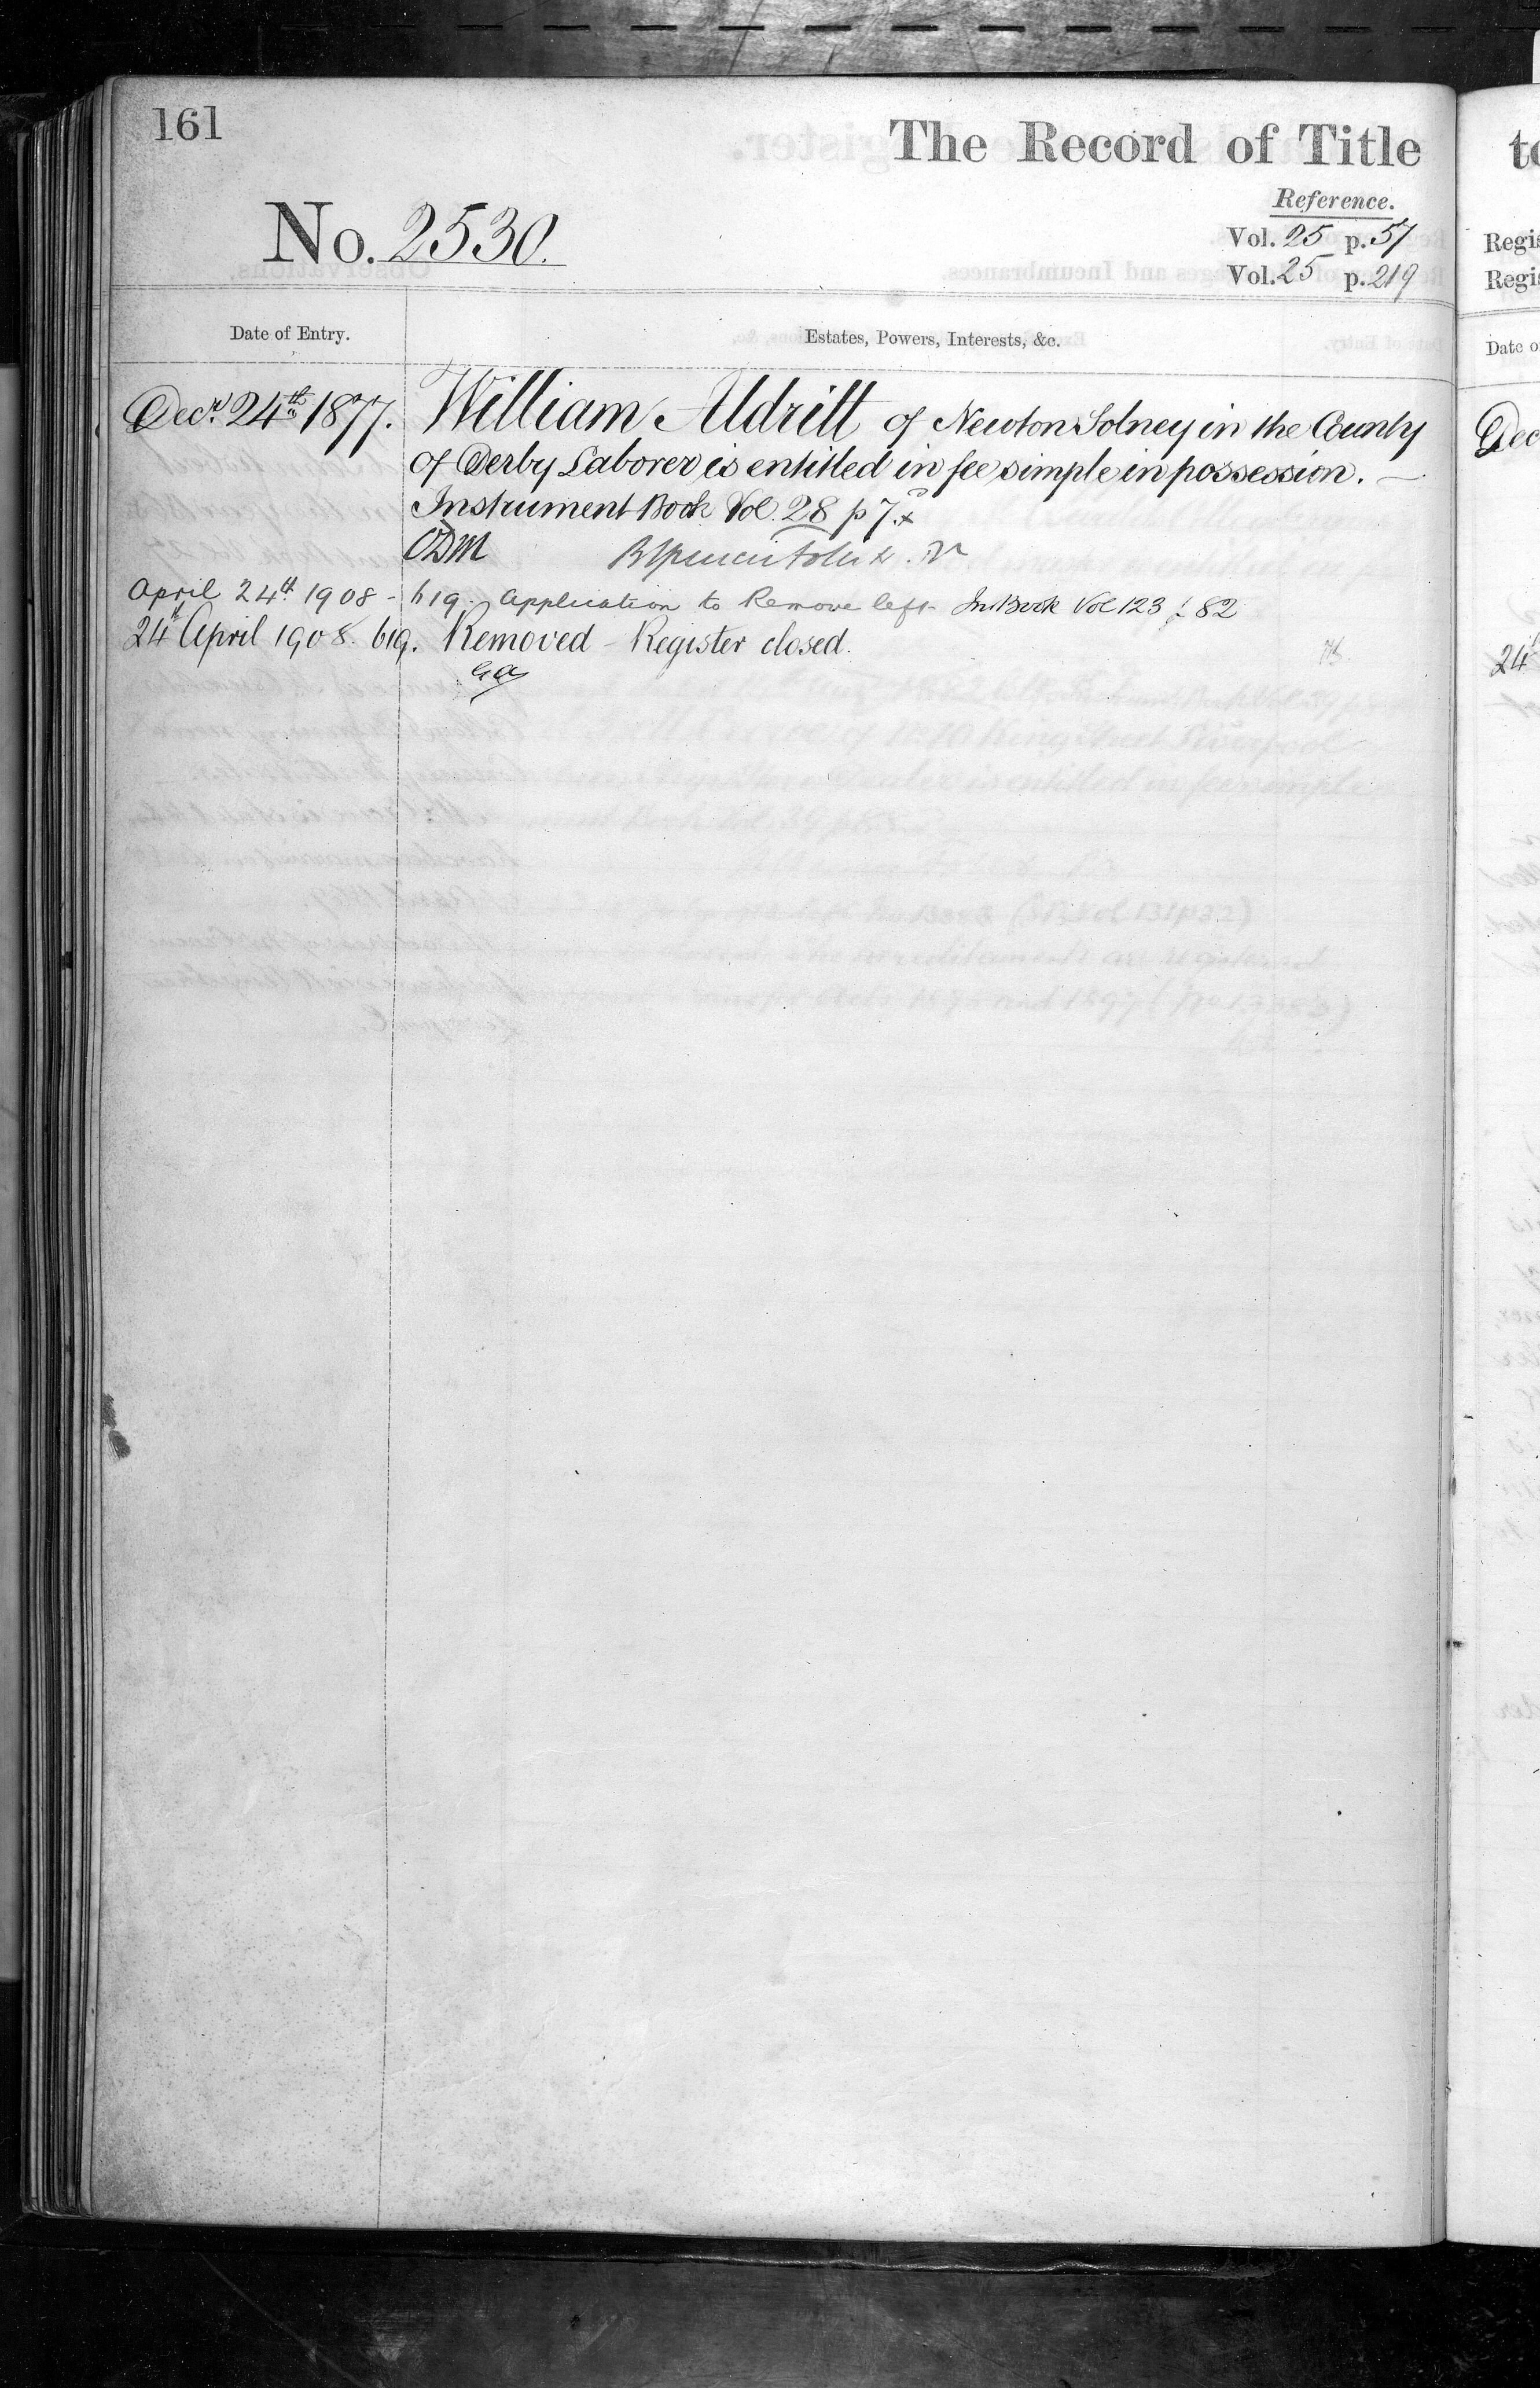 161
The Record of Title
Reference.
No. 2530.
Vol. 25 p. 57
Vol. 25 p. 219
Date of Entry.
Estates, Powers, Interests, &c.
Decr. 24th 1877. William Aldritt of Newton Solney in the County
of Derby Laborer is entitled in fee simple in possession.
Instrument Book Vol. 28 p 7.
April 24th 1908 - 619. Application to Remove left In. Book Vol 123 f 82
24th April 1908. 619. Removed - Register closed.
to
Regis
Regis
Date o
Dec
24